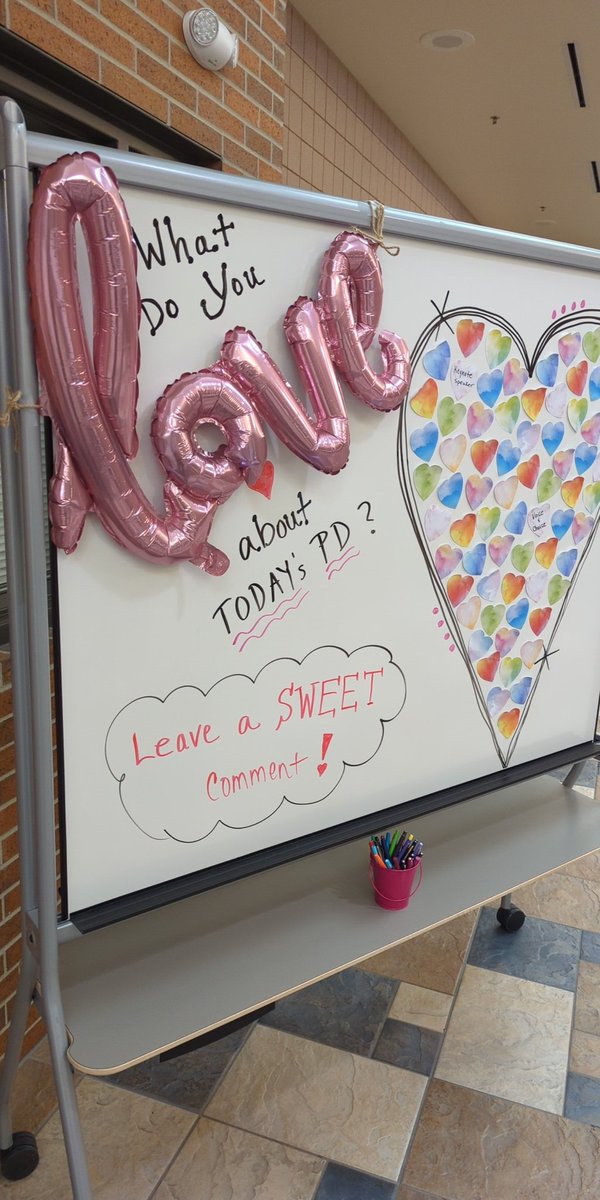 What
Do You
love
about
TODAY'S PD?
Leave a SWEET
Comment!
Keynote
Speaker
Voice
&
Choice